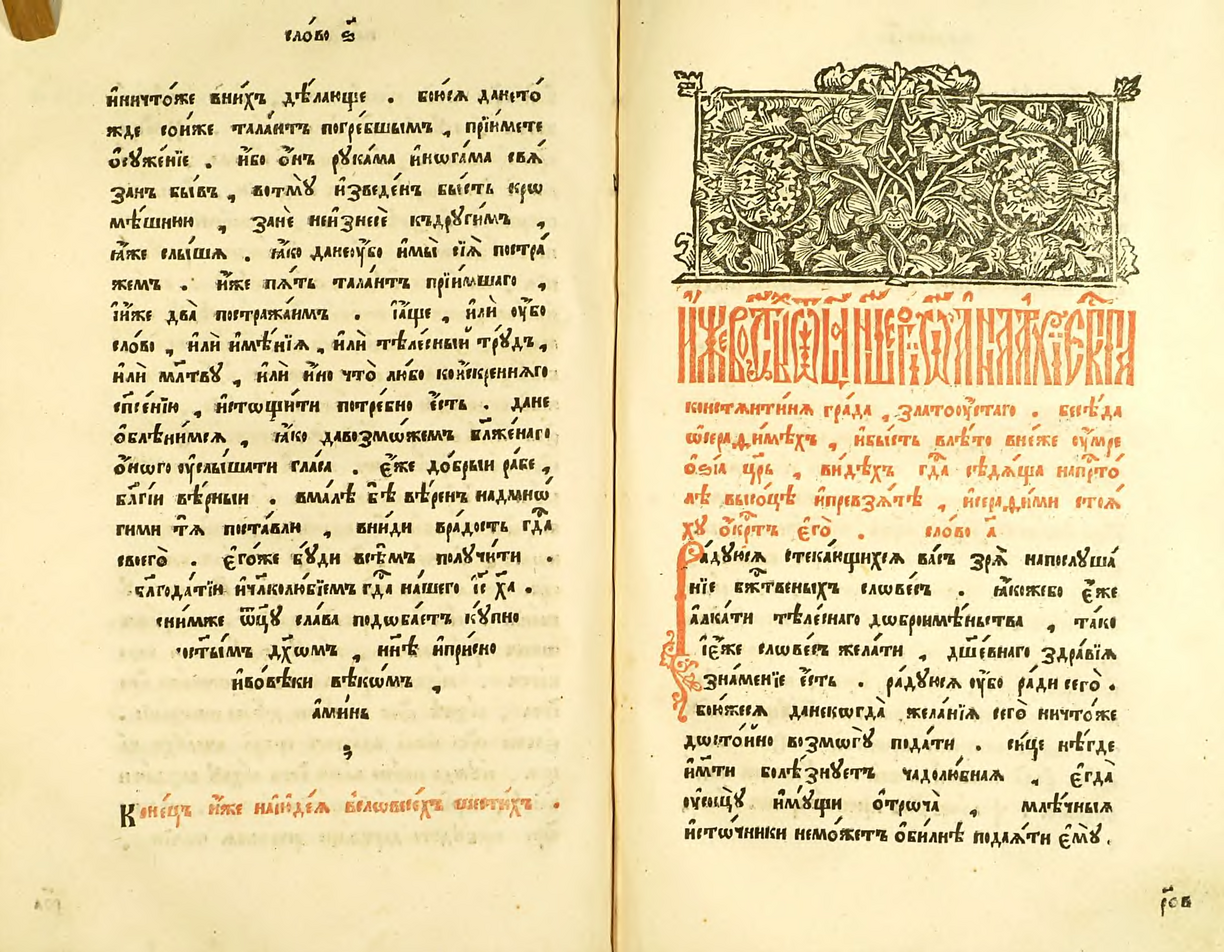 сло́во ѕ҃
и҆ничто́же вни́хъ дѣ́лающе . бою́сѧ да нето́
жде со и҆́же тала́нтъ погре́бшымъ , прїи́мете
ѡ҆сꙋже́нїе . и҆́бо ѻ҆́нъ рꙋка́ма и҆ нога́ма свѧ́
занъ бы́въ , вотмꙋ̀ и҆зведе́нъ бы́сть кро
мѣ́шнюю , занѐ не и҆знесѐ къ дрꙋги́мъ ,
ꙗ҆́же слы́ша . ꙗ҆́ко да не ᲂу҆́бо и҆ мы̀ сїѧ̀ постра́
жемъ . и҆́же пѧ́ть тала́нтъ прїи́мшаго ,
і҆ и҆́же два̀ постража́имъ . і҆ а҆́ще , и҆лѝ ᲂу҆́бо
сло́во , и҆лѝ и҆мѣ́нїѧ , и҆лѝ тѣле́сный трꙋ́дъ ,
и҆лѝ мл҃твꙋ , и҆лѝ и҆́но что̀ любо кои́скреннѧго
сп҃се́нїю , и҆стощи́ти потре́бно є҆́сть . да не
ѡ҆блѣни́мсѧ , ꙗ҆́ко да возмо́жемъ бл҃же́наго
ѻ҆́ного ᲂу҆слы́шати гла́са . є҆́же до́брыи ра́бе ,
благі́и вѣ́рныи . вма́лѣ бѣ̀ вѣ́ренъ надмно́
гими тѧ̀ поста́влю , вни́ди вра́дость гдⷭ҇а
своего̀ . є҆го́же бꙋ́ди всѣ́мъ получи́ти .
благода́тїю и҆ чл҃колю́бїемъ гдⷭ҇а на́шего і҆с҃ ха҃ .
сни́мже ѻ҆ц҃ꙋ̀ сла́ва подоба́етъ кꙋ́пно
с ст҃ы́мъ дх҃омъ , нн҃ѣ и҆ при́сно
и҆ во вѣ́ки вѣко́мъ ,
а҆ми́нь
Коне́цъ
и҆́же во ст҃ы́хъ
константи́нѧ гра́да , златоꙋ́стаго . бесѣ́да
ѡ҆ серафи́мѣхъ , и҆ бы́сть влѣ́то в не́же ᲂу҆́мре
ѻ҆зі́а цр҃ь , ви́дѣхъ гдⷭ҇а сѣдѧ́ща на прⷭ҇то́
лѣ высо́цѣ и҆ превзѧ́тѣ , и҆ серафи́ми стоѧ́
хꙋ ѻ҆́крⷭ҇тъ є҆го̀ . сло́во а҃
Ра́дꙋюсѧ стека́ющихсѧ ва́съ зрѧ̀ на послꙋша́
нїе бж҃твеныхъ слове́съ . ꙗ҆́коже бо є҆́же
а҆лка́ти тѣле́снаго доброимѣ́ньства , та́ко
і҆ є҆́же слове́съ жела́ти , дш҃е́внаго здра́вїѧ
зна́менїе є҆́сть . ра́дꙋюсѧ ᲂу҆́бо ра́ди сего̀ .
бою́жесѧ да некогда̀ жела́нїѧ сего̀ ничто́же
досто́йно возмогꙋ̀ пода́ти . си́це нѣ́где
и҆ мт҃и болѣ́знꙋетъ чадолю́бнаѧ , є҆гда̀
ᲂу҆сѡ́щꙋ и҆мꙋ́щи ѻ҆троча̀ , мле́чныѧ
и҆сто́чники не мо́жетъ ѻ҆би́лнѣ подаѧ́ти є҆мꙋ̀ .
ро҃в